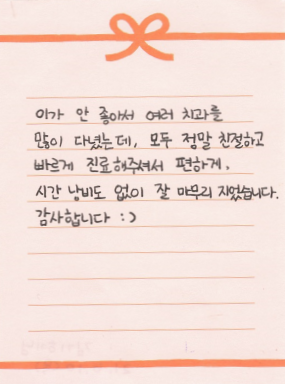 이가 안 좋아서 여러 치과를
많이 다녔는데, 모두 정말 친절하고
빠르게 진료해주셔서 편하게,
시간 낭비도 없이 잘 마무리 지었습니다.
감사합니다 :)